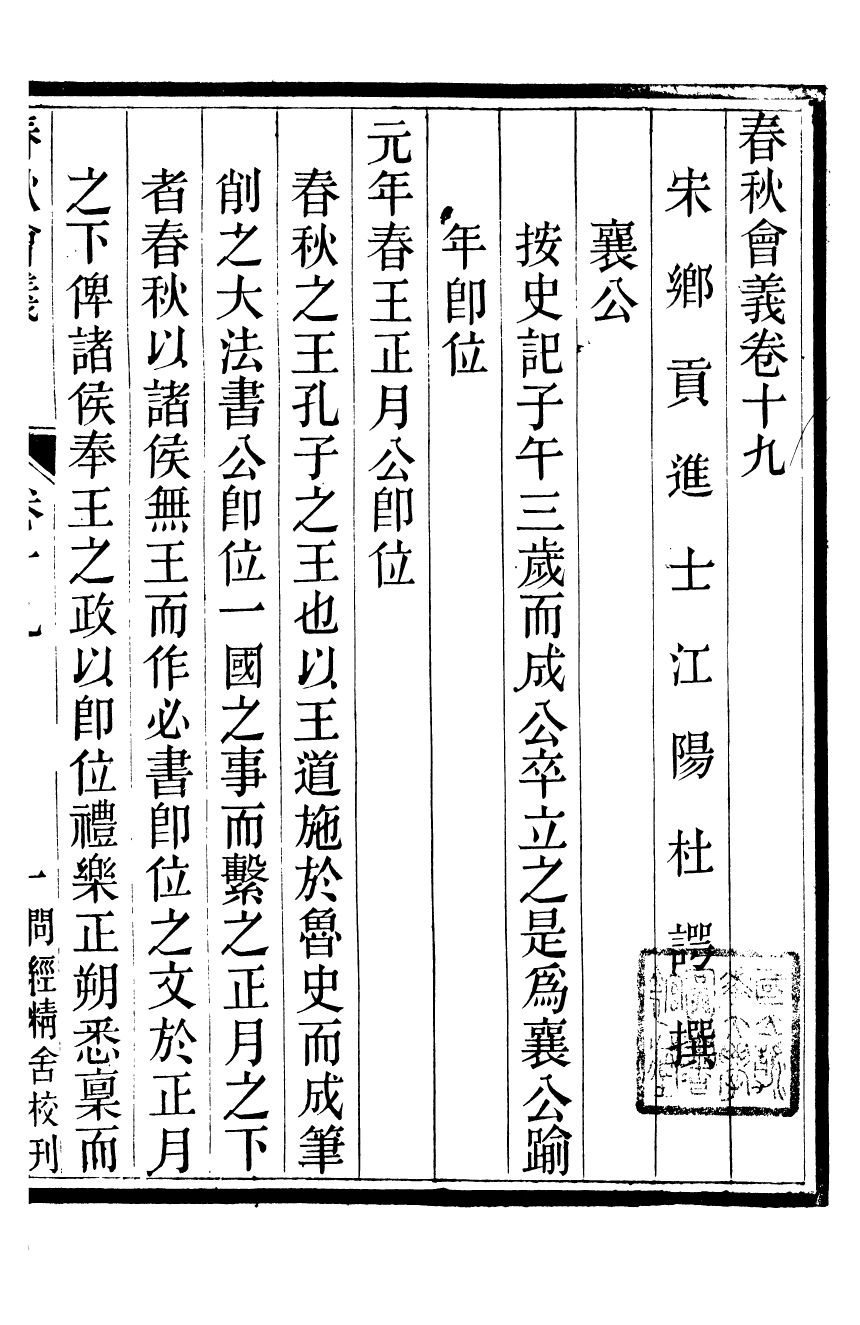 春秋會義卷十九
宋鄉貢進士江陽杜諤撰
襄公
按史記子午三歲而成公卒立之是爲襄公踰
年卽位
元年春王正月公卽位
春秋之王孔子之王也以王道施於魯史而成筆
削之大法書公卽位一國之事而繫之正月之下
者春秋以諸侯無王而作必書卽位之文於正月
之下俾諸侯奉王之政以卽位禮樂正朔悉稟而
春秋會義 卷十九 一 問經精舍校刊